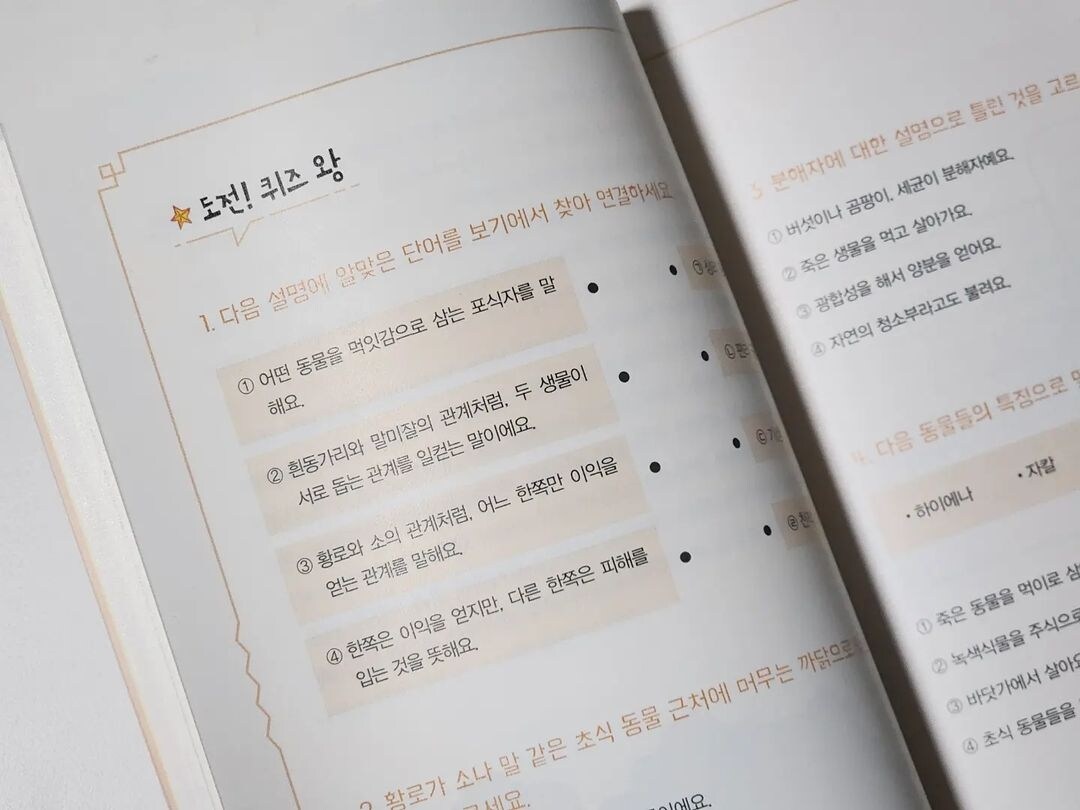 도전! 퀴즈 왕
1. 다음 설명에 알맞은 단어를 보기에서 찾아 연결하세요
① 어떤 동물을 먹잇감으로 삼는 포식자를 말
해요.
② 흰동가리와 말미잘의 관계처럼, 두 생물이
서로 돕는 관계를 일컫는 말이에요.
③ 황로와 소의 관계처럼, 어느 한쪽만 이익을
얻는 관계를 말해요.
④ 한쪽은 이익을 얻지만, 다른 한쪽은 피해를
입는 것을 뜻해요.
㉠
㉡
㉢
㉣
2. 황로가 소나 말 같은 초식 동물 근처에 머무는 까닭으로
3. 분해자에 대한 설명으로 틀린 것을 고르
① 버섯이나 곰팡이, 세균이 분해자예요.
② 죽은 생물을 먹고 살아가요.
③ 광합성을 해서 양분을 얻어요.
④ 자연의 청소부라고도 불려요.
4. 다음 동물들의 특징으로
• 하이에나
• 자칼
① 죽은 동물을 먹이로
② 녹색식물을 주식으로
③ 바닷가에서 살아요
④ 초식 동물들을